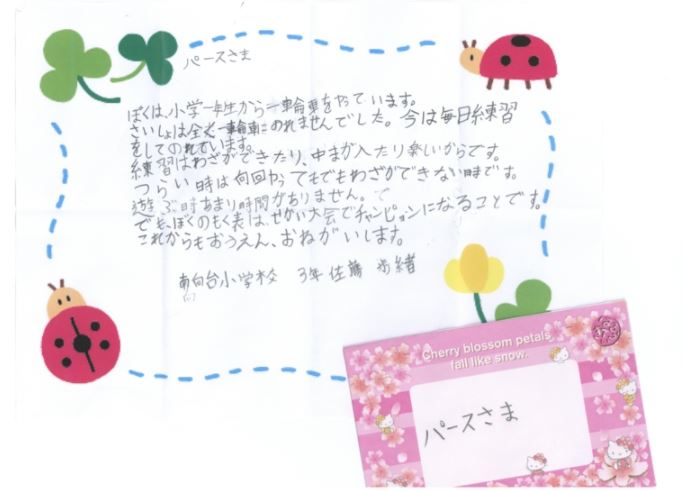 パースさま
ぼくは、小学一年生から一輪車をやっています。
さいしょは全然一輪車にのれませんでした。今は毎日練習
をしてのれています。
練習はわざができたり、中まが入たり楽しいからです。
つらい時は何回やってもでもわざができない時です。
遊ぶ時あまり時間がありません。
でも、ぼくのもく表は、せかい大会でチャンピョンになることです。
これからもおうえん、おねがいします。
南向台小学校 3年 佐藤 緒
Cherry blossom petals
fall like snow.
パースさま